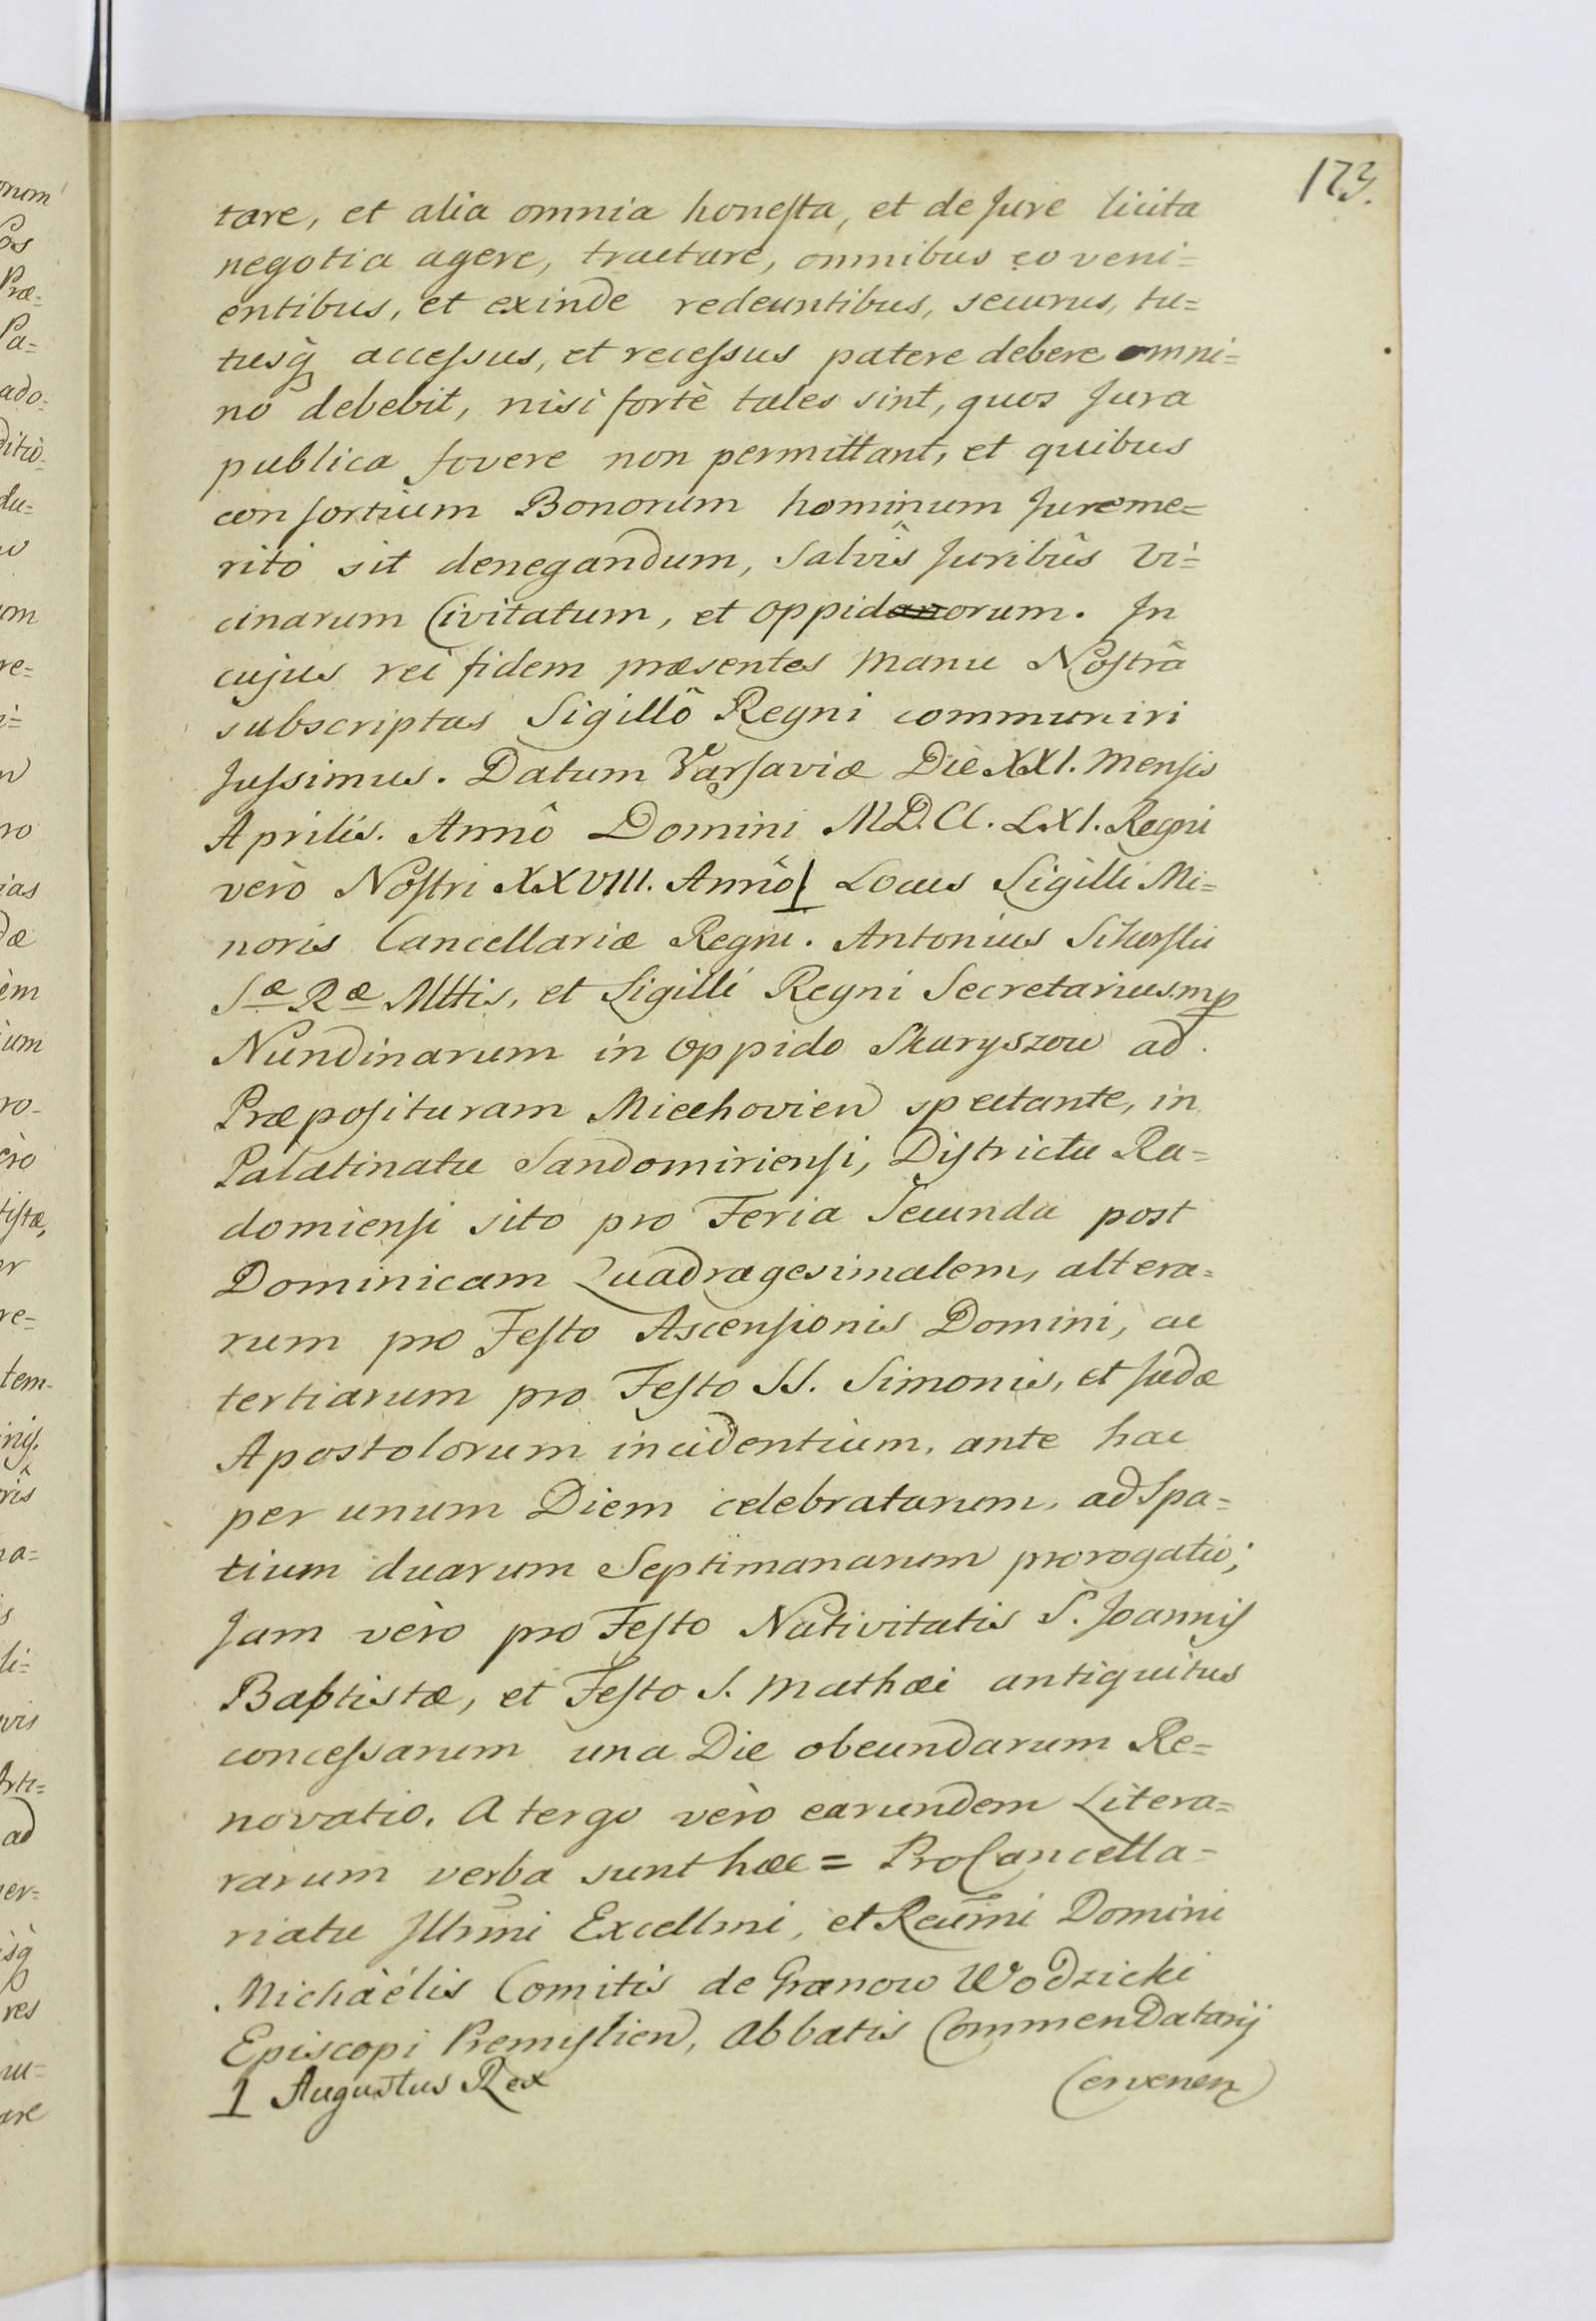 173.
tare, et alia omnia honesta, et de Jure licita
negotia agere, tractare, omnibus eo veni=
entibus, et exinde redeuntibus, securus, tu=
tusq accessus, et recessus patere debere omni=
no debebit, nisi fortè tales sint, quos Jura
publica fovere non permittant, et quibus
consortium Bonorum hominum Jureme=
rito sit denegandum, Salvîs Juribûs Vi=
cinarum Civitatum, et Oppidanorum. In
cujus rei fidem præsentes Manu Nostrâ
subscriptas Sigillô Regni communiri
Jussimus. Datum Varsaviæ Die XXI. Mensis
Aprilis. Annô Domini M.D.CC.LXI. Regni
verò Nostri XXVIII. Annô Locus Sigilli Mi=
noris Cancellariæ Regni. Antonius Sikorski
Sæ Ræ Mttis, et Sigilli Regni Secretarius.mp
Nundinarum in Oppido Skaryszow ad
Præposituram Miechovien spectante, in
Palatinatu Sandomiriensi, Districtu Ra=
domiensi sito pro Feria Secunda post
Dominicam Quadragesimalem, altera=
rum pro Festo Ascensionis Domini, ac
tertiarum pro Festo SS. Simonis, et Judæ
Apostolorum incidentium, ante hac
per unum Diem celebratarum, ad Spa=
tium duarum Septimanarum prorogatio;
Jam verò pro Festo Nativitatis S. Joannis
Baptistæ, et Festo S. Mathæi antiquitus
concessarum una Die obeundarum Re=
novatio. A tergo verò earundem Litera=
rarum verba sunt hæc = ProCancella=
riatu Illrmi Excellmi, et Reumi Domini
Michaèlis Comitis de Granow Wodzicki
Episcopi Premislien, Abbatis Commendatarij
Augustus Rex
Cervenen